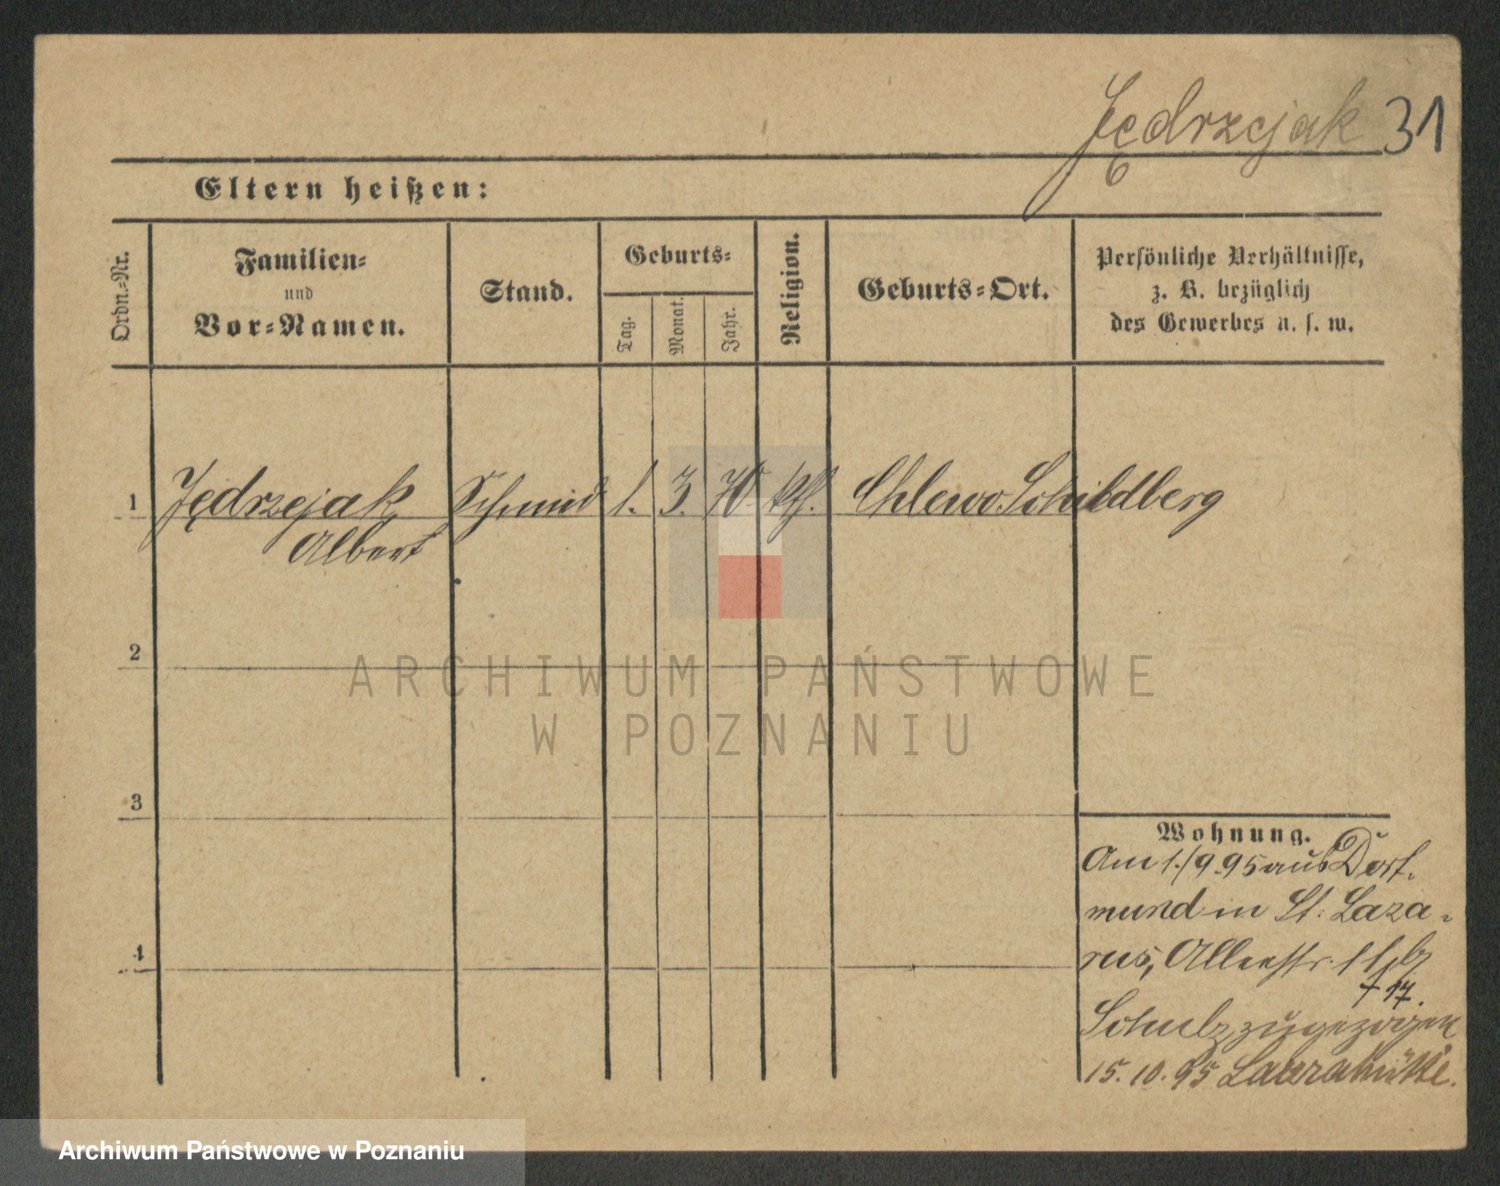 Jędrzejak 31
Eltern heißen:
Ordn.-Nr.
Familien-
und
Vor-Namen.
Stand.
Geburts-
Tag.
Monat.
Jahr.
Religion.
Geburts-Ort.
Persönliche Verhältnisse,
z. B. bezüglich
des Gewerbes u. s. w.
1 Jędrzejak Schmied 1. 3. 70. kth. Chlewo. Schildberg
Albert
2
3
4
Wohnung.
Am 1./9.95 aus Dort-
mund in St. Laza-
rus, Alleestr. 11, b/
† 17.
Schulz zugezogen
15.10.95 Laurahütte.
ARCHIWUM PAŃSTWOWE
W POZNANIU
Archiwum Państwowe w Poznaniu